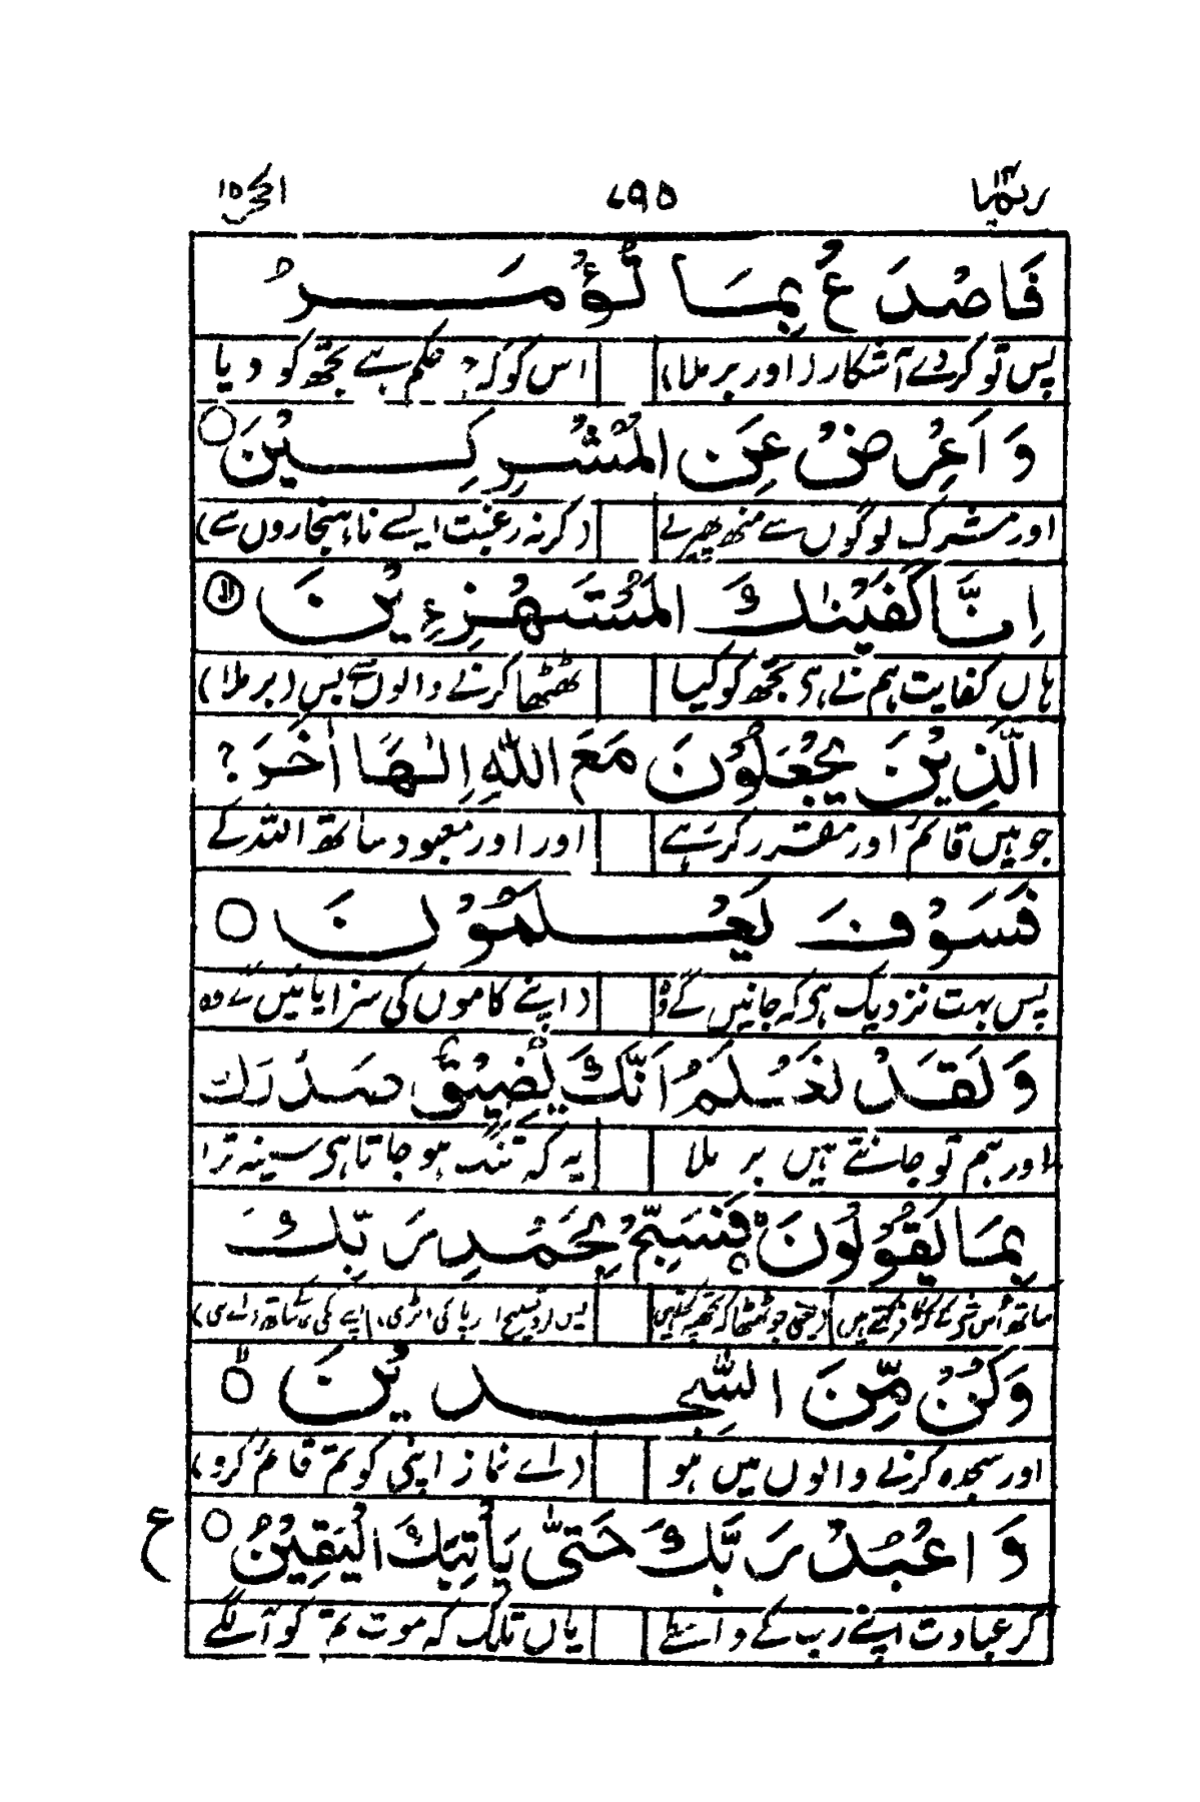 ربما ۱۴ ۷۹۵ الحجر ۱۵
فَاصْدَعْ بِمَا تُؤْمَرُ
پس تو کر دے آشکارا اور برملا) اس کو کہ حکم ہے تجھ کو دیا
وَاَعْرِضْ عَنِ الْمُشْرِكِيْنَ ○
اور مشرک لوگوں سے منھ پھیر لے (کر نہ رغبت ایسے ناہنجاروں سے)
اِنَّا كَفَيْنٰكَ الْمُسْتَهْزِءِيْنَ ۙ
ہاں کفایت ہم نے ہی تجھ کو کیا ٹھٹھا کرنے والوں سے بس (برملا)
الَّذِيْنَ يَجْعَلُوْنَ مَعَ اللّٰهِ اِلٰهًا اٰخَرَ ۚ
جو ہیں قائم اور مقرر کر رہے اور اور معبود ساتھ اللہ کے
فَسَوْفَ يَعْلَمُوْنَ ○
پس بہت نزدیک ہی کہ جانیں گے وہ (اپنے کاموں کی سزا پائیں گے وہ
وَلَقَدْ نَعْلَمُ اَنَّكَ يَضِيْقُ صَدْرُكَ
اور ہم تو جانتے ہیں برملا یہ کہ تنگ ہو جاتا ہی سینہ ترا
بِمَا يَقُوْلُوْنَ ۙ فَسَبِّحْ بِحَمْدِ رَبِّكَ
ساتھ اُس کے
وَكُنْ مِّنَ السّٰجِدِيْنَ ۙ
اور سجدہ کرنے والوں میں ہو (اے نماز اپنی کو تم قائم کرو)
وَاعْبُدْ رَبَّكَ حَتّٰى يَاْتِيَكَ الْيَقِيْنُ ○ ع
کر عبادت اپنے رب کے واسطے یاں تلک کہ موت تم کو آ لگے